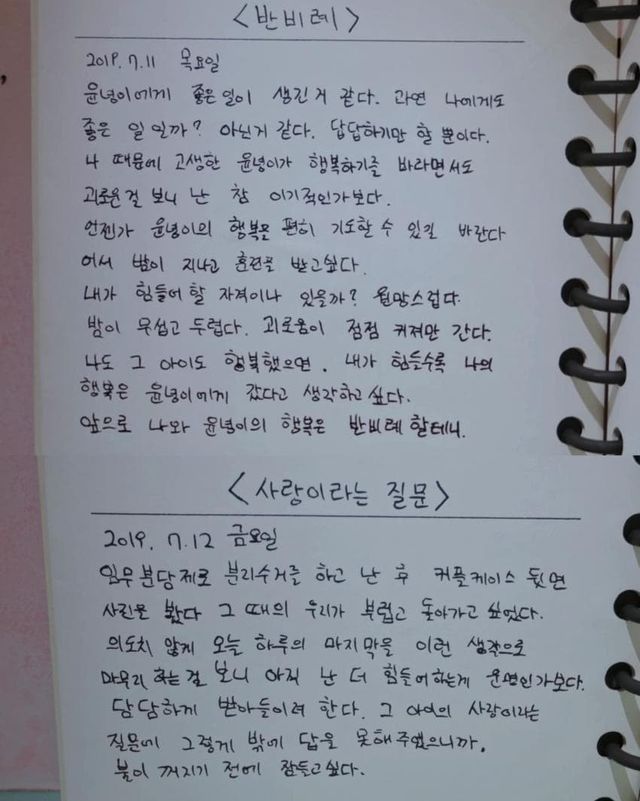 <반비례>
2019. 7. 11 목요일
윤녕이에게 좋은일이 생긴거 같다. 과연 나에게도
좋은 일일까? 아닌거 같다. 답답하기만 할 뿐이다.
나 때문에 고생한 윤녕이가 행복하기를 바라면서도
괴로운걸 보니 난 참 이기적인가보다.
언젠가 윤녕이의 행복을 편히 기도할 수 있길 바란다
어서 밤이 지나고 훈련을 받고싶다.
내가 힘들어 할 자격이나 있을까? 원망스럽다
밤이 무섭고 두렵다. 괴로움이 점점 커져만 간다.
나도 그 아이도 행복했으면. 내가 힘들수록 나의
행복은 윤녕이에게 갔다고 생각하고싶다.
앞으로 나와 윤녕이의 행복은 반비례 할테니.
<사랑이라는 질문>
2019. 7. 12 금요일
임무분담제로 분리수거를 하고 난 후 커플케이스 뒷면
사진을 봤다 그 때의 우리가 부럽고 돌아가고 싶었다.
의도치 않게 오늘 하루의 마지막을 이런 생각으로
마무리 하는걸 보니 아직 난 더 힘들어하는게 운명인가보다.
담담하게 받아들이려 한다. 그 아이의 사랑이라는
질문에 그렇게 밖에 답을 못해주었으니까.
불이 꺼지기 전에 잠들고싶다.